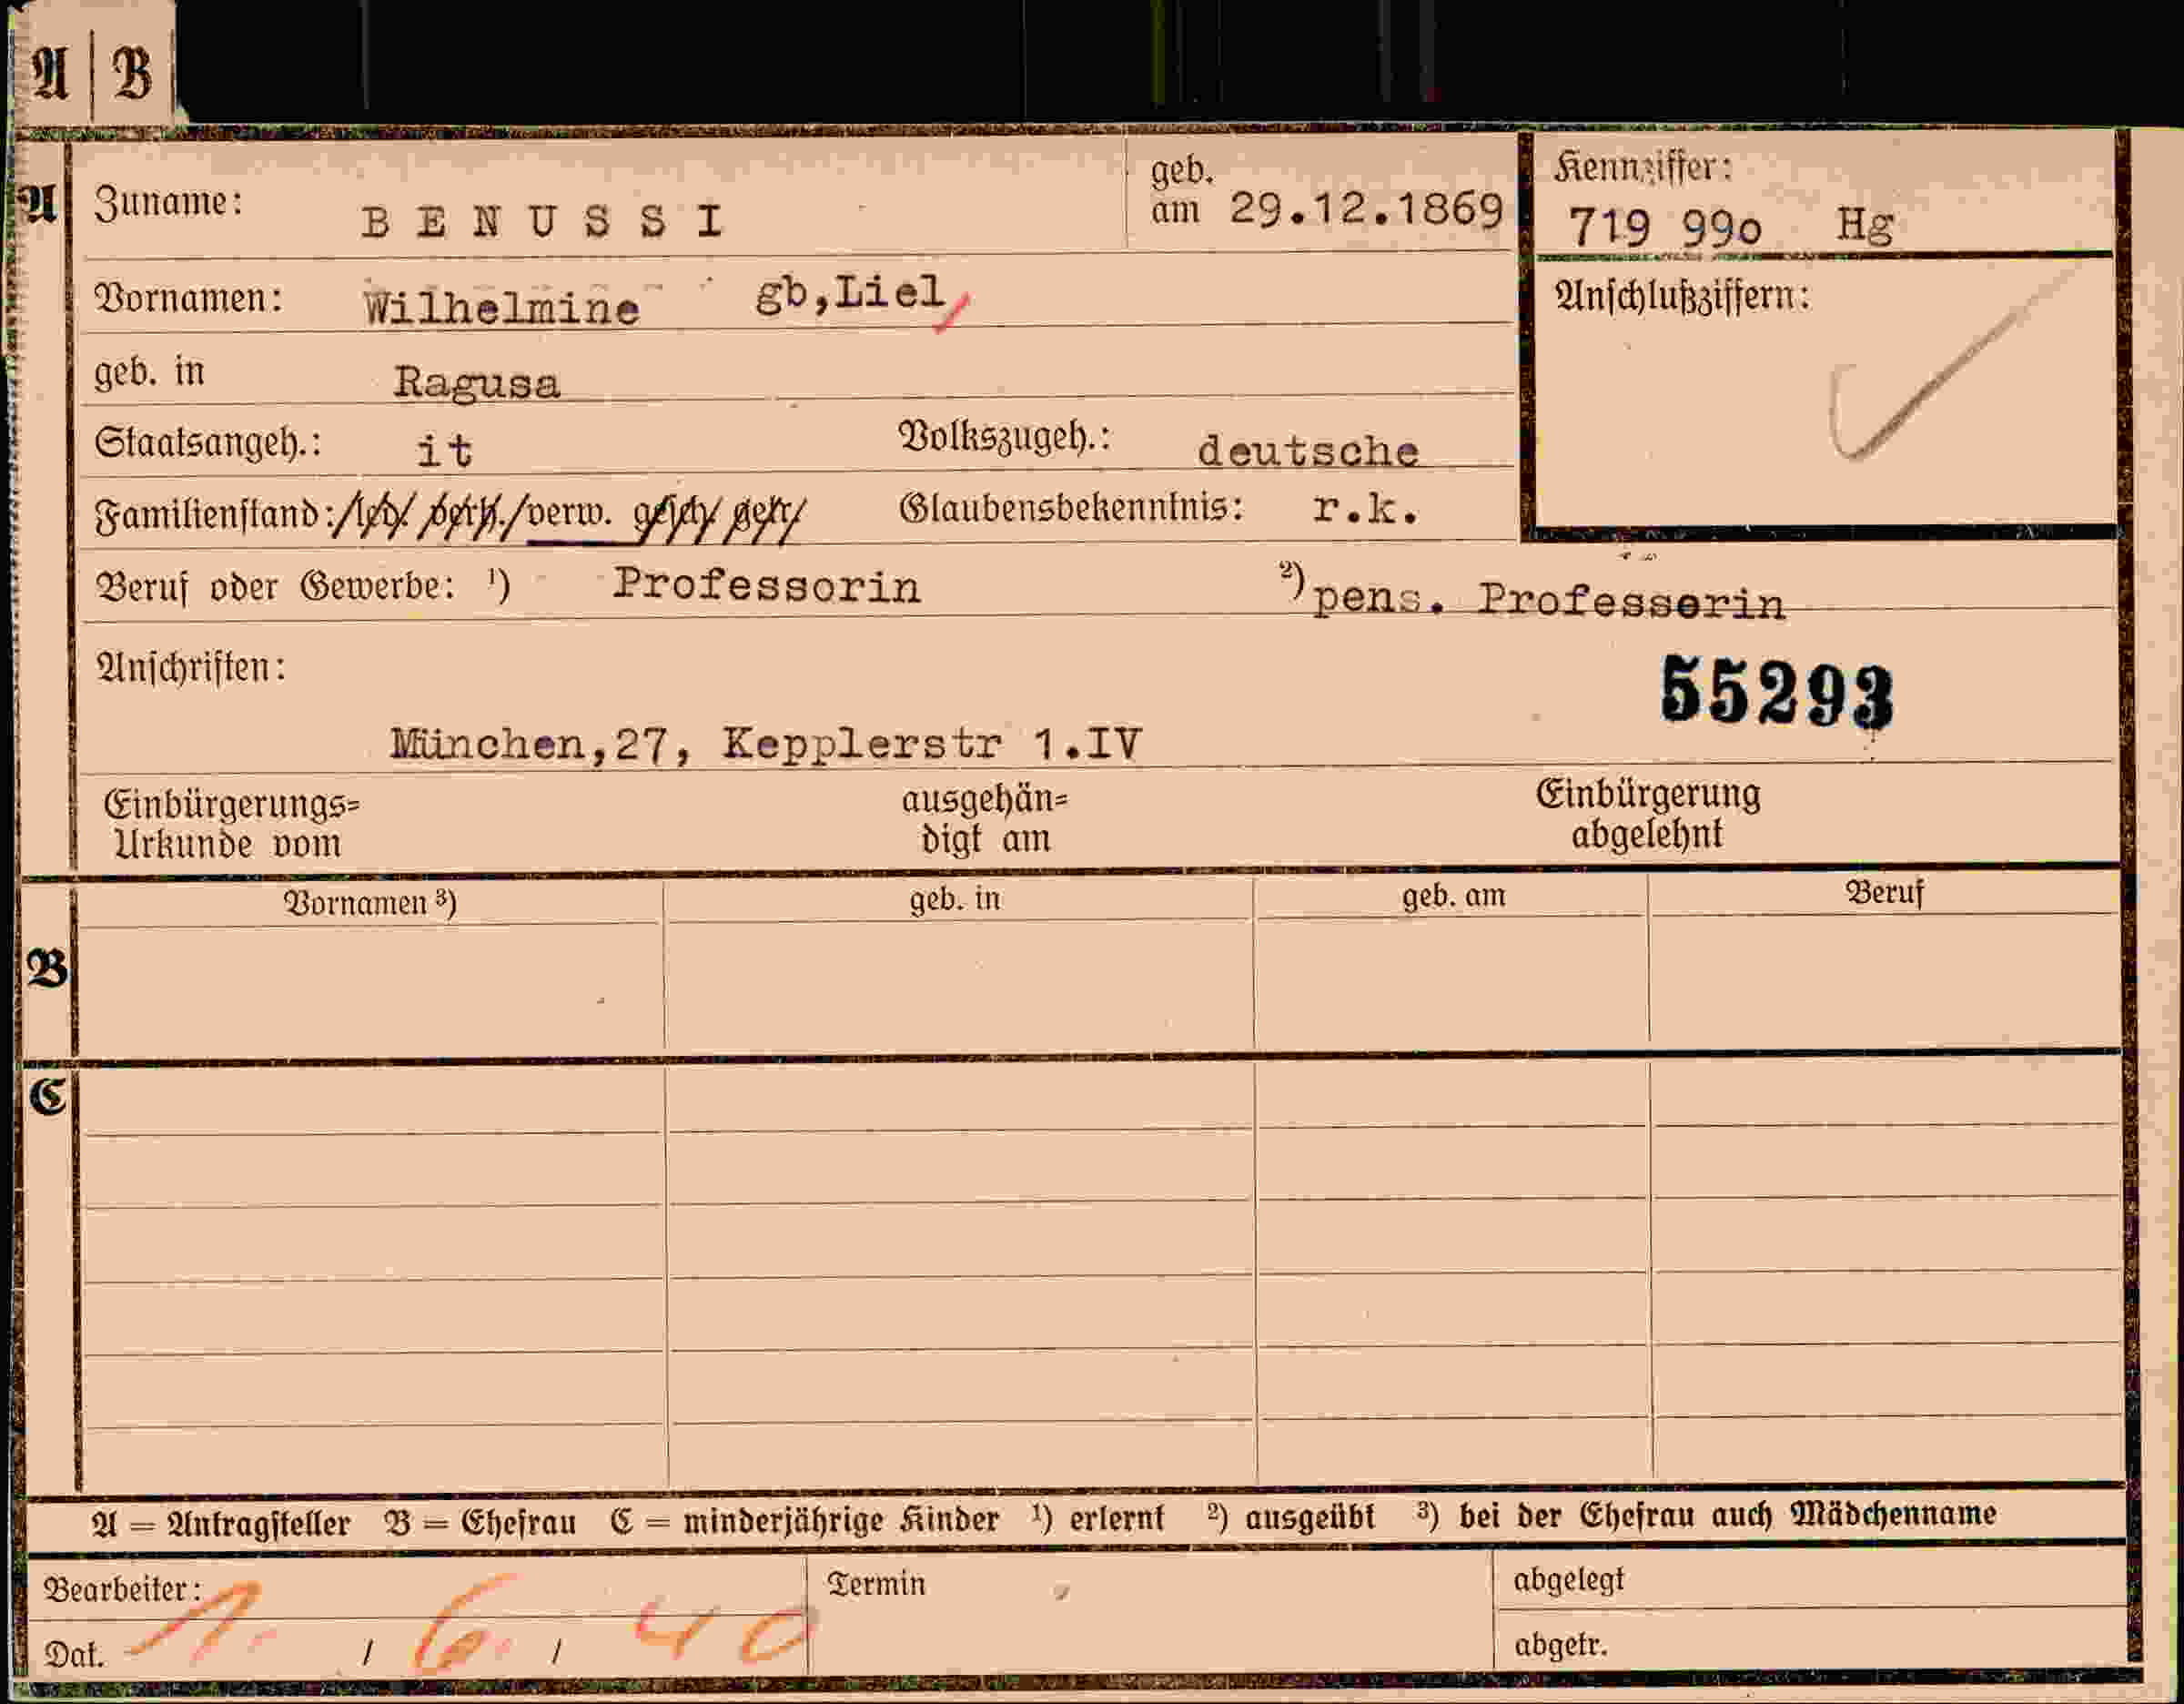 A | B
A
Zuname: BENUSSI geb. am 29.12.1869
Kennziffer: 719 990 Hg
Vornamen: Wilhelmine gb,Liel,
Anschlußziffern:
geb. in Ragusa
Staatsangeh.: it Volkszugeh.: deutsche
Familienstand: led. verh. verw. gesch. getr. Glaubensbekenntnis: r.k.
Beruf oder Gewerbe: ¹) Professorin ²) pens. Professorin
Anschriften:
55293
München,27, Kepplerstr 1.IV
Einbürgerungs=Urkunde vom ausgehän=digt am Einbürgerung abgelehnt
B
Vornamen ³) geb. in geb. am Beruf
C
A = Antragsteller B = Ehefrau C = minderjährige Kinder ¹) erlernt ²) ausgeübt ³) bei der Ehefrau auch Mädchenname
Bearbeiter: Termin abgelegt
Dat. 1. / 6. / 40 abgetr.